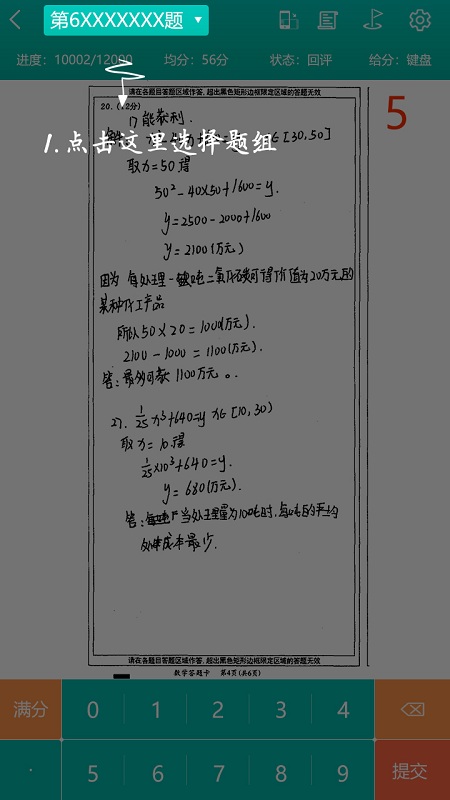 第6XXXXXXX题
进度：10002/12000 均分：56分 状态：回评 给分：键盘
请在各题目答题区域作答，超出黑色矩形边框限定区域的答题无效
5
20.（12分）
1.点击这里选择题组
能获利.
∈[30,50]
取x=50得
50²-40×50+1600=y.
y=2500-2000+1600
y=2100(万元)
因为 每处理一吨二氧化碳可得价值为20万元的
某种化工产品
所以50×20=1000(万元).
2100-1000=1100(万元).
答：最多可获1100万元。
1/25x³+640=y x∈[10,30)
取x=10得
1/25×10³+640=y.
y=680(万元).
答： 当处理量为10吨时，每吨的平均
处理成本最少.
请在各题目答题区域作答，超出黑色矩形边框限定区域的答题无效
数学答题卡 第4页(共6页)
满分 0 1 2 3 4
· 5 6 7 8 9 提交